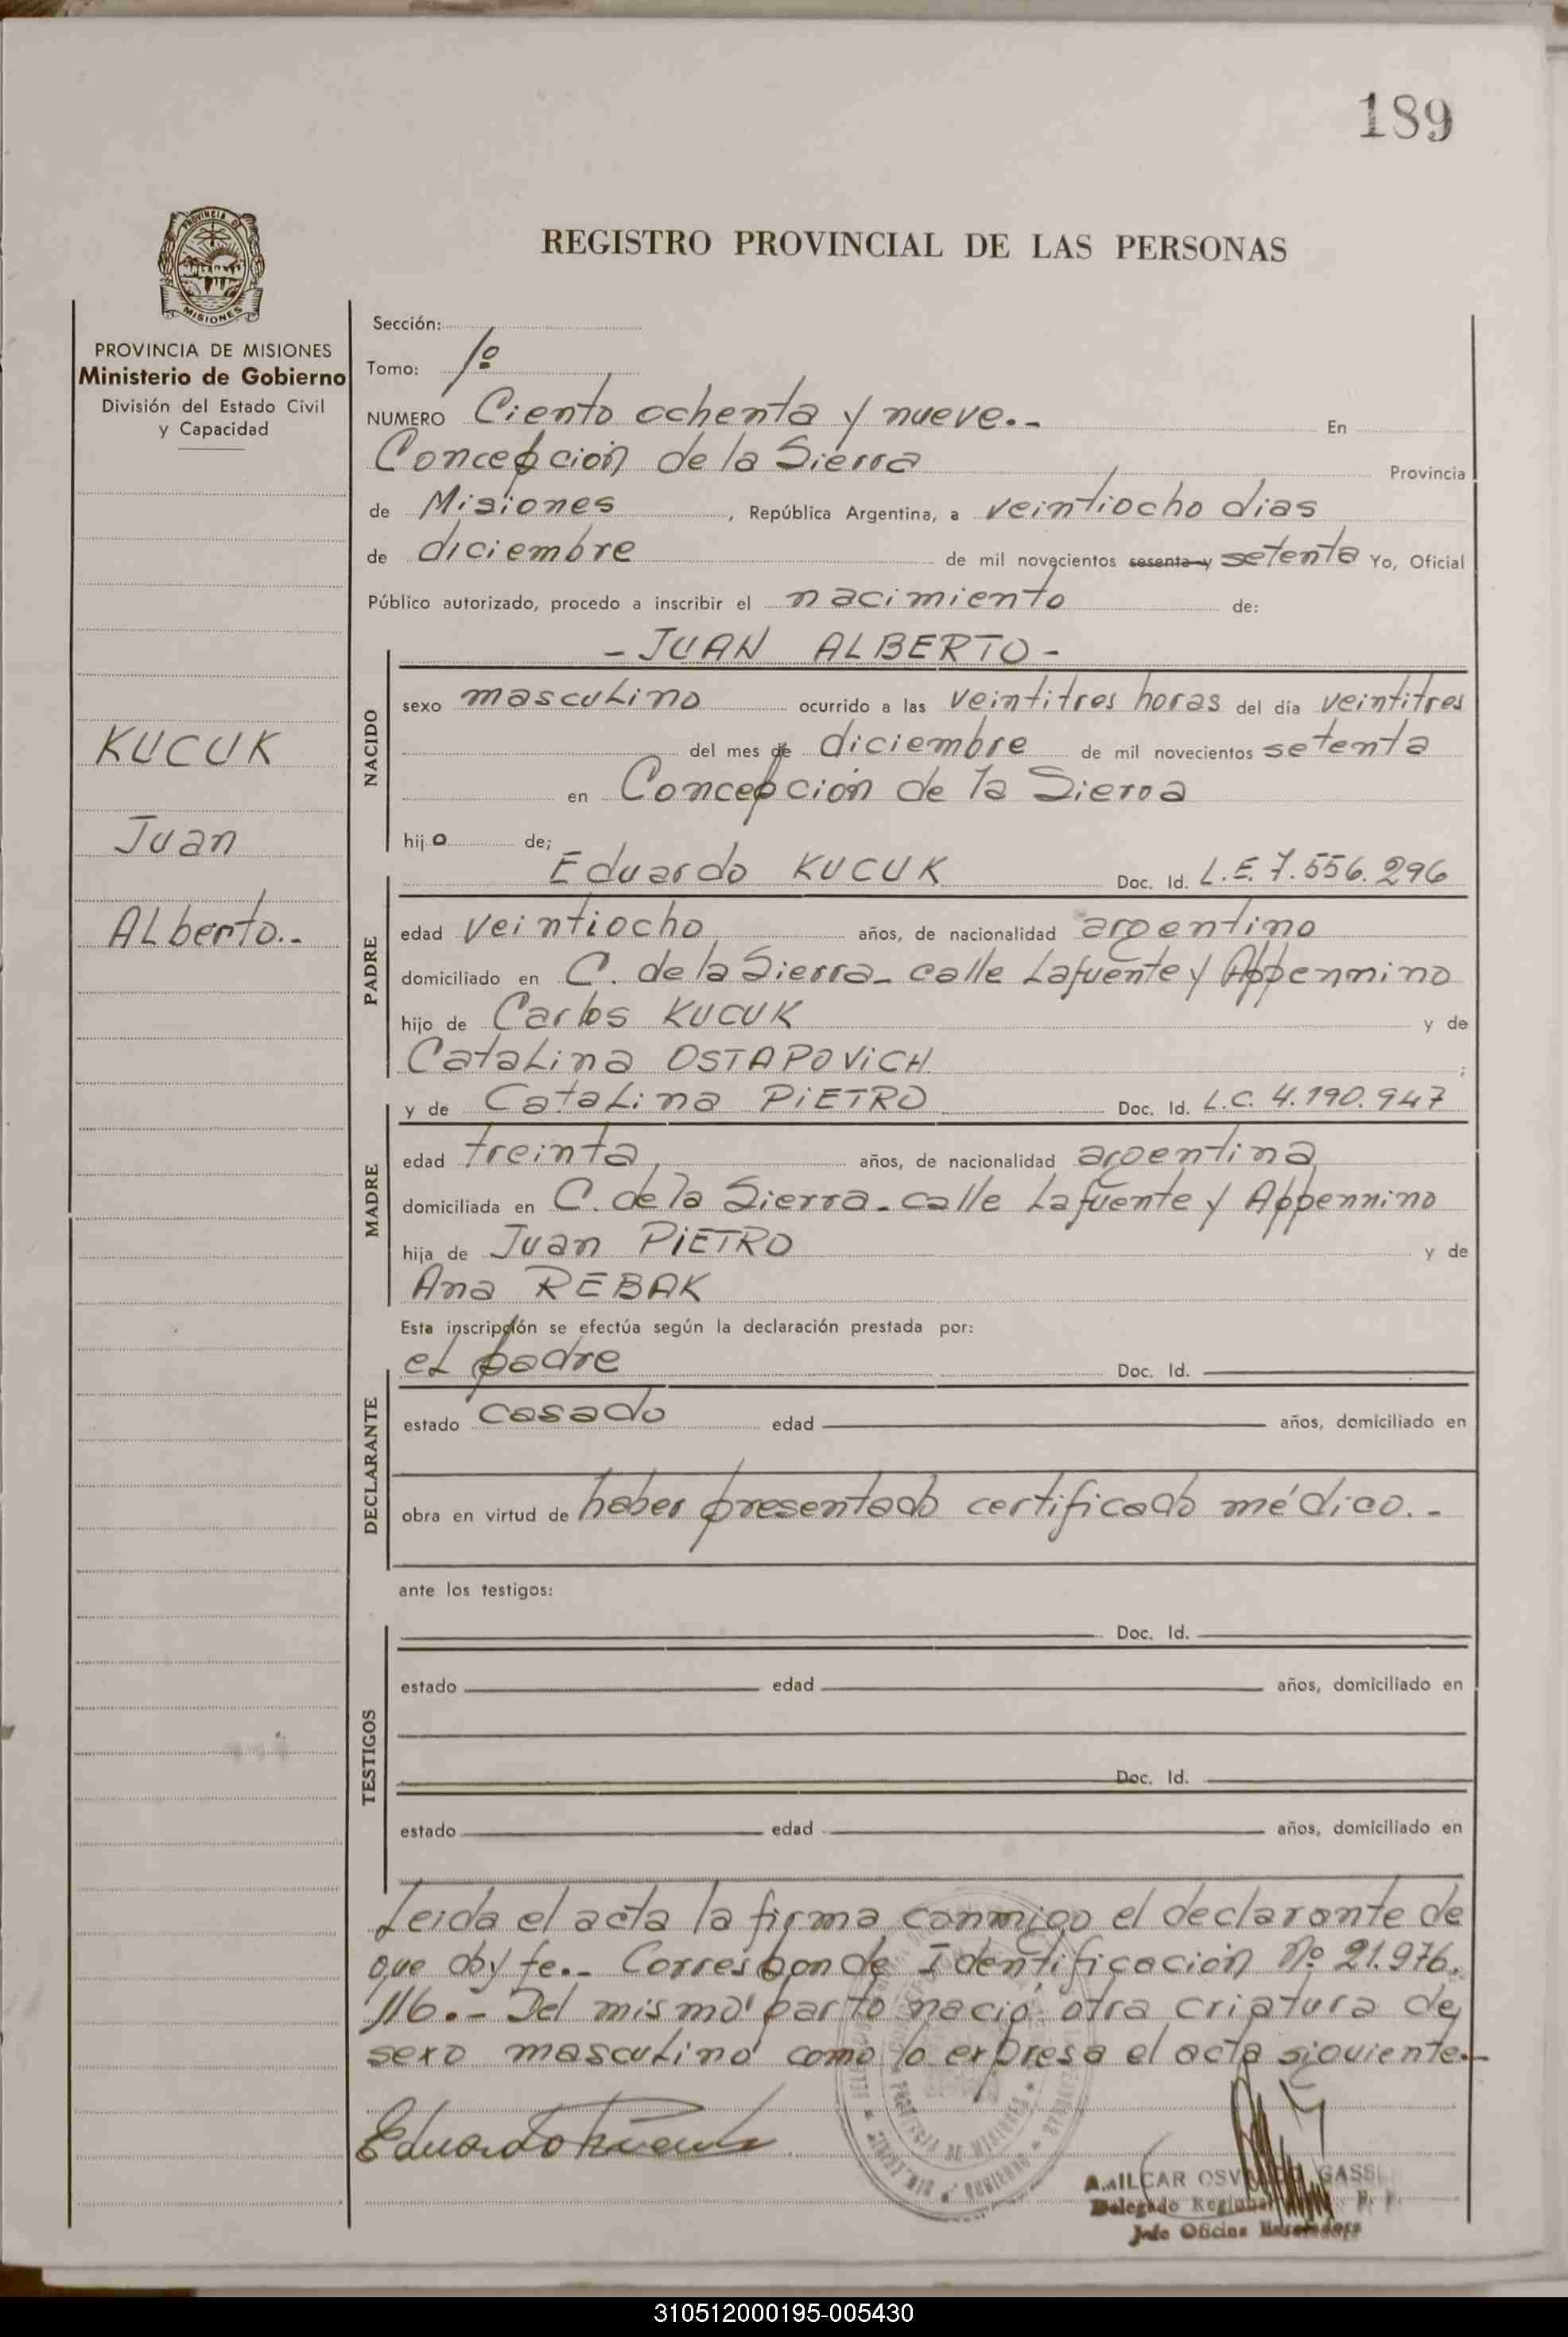 189
PROVINCIA DE
MISIONES
REGISTRO PROVINCIAL DE LAS PERSONAS
PROVINCIA DE MISIONES
Ministerio de Gobierno
División del Estado Civil
y Capacidad
KUCUK
Juan
ALberto.-
Sección:
Tomo: 1º
NUMERO Ciento ochenta y nueve.- En
Concepción de la Sierra Provincia
de Misiones, República Argentina, a veintiocho dias
de diciembre de mil novecientos sesenta y setenta Yo, Oficial
Público autorizado, procedo a inscribir el nacimiento de:
- JUAN ALBERTO -
NACIDO
sexo masculino ocurrido a las veintitres horas del día veintitres
del mes de diciembre de mil novecientos setenta
en Concepción de la Sierra
hijo de;
Eduardo KUCUK Doc. Id. L.E. 7.556.296
PADRE
edad veintiocho años, de nacionalidad argentino
domiciliado en C. de la Sierra- calle Lafuente y Appennino
hijo de Carlos KUCUK y de
Catalina OSTAPOViCH;
y de Catalina PiETRO Doc. Id. L.C. 4.190.947
MADRE
edad treinta, años, de nacionalidad argentina
domiciliada en C. de la Sierra- calle Lafuente y Appennino
hija de Juan PiETRO y de
Ana REBAK
Esta inscripción se efectúa según la declaración prestada por:
el padre Doc. Id.
DECLARANTE
estado casado edad años, domiciliado en
obra en virtud de haber presentado certificado médico.-
ante los testigos:
Doc. Id.
TESTIGOS
estado edad años, domiciliado en
Doc. Id.
estado edad años, domiciliado en
Leida el acta la firma conmigo el declarante de
que doy fe.- Corresponde Identificación Nº 21.976.
116.- Del mismo parto nació otra criatura de
sexo masculino como lo expresa el acta siguiente.-
PROVINCIA DE MISIONES
Eduardo Kucuk
Delegado Regional
Jefe Oficina
310512000195-005430